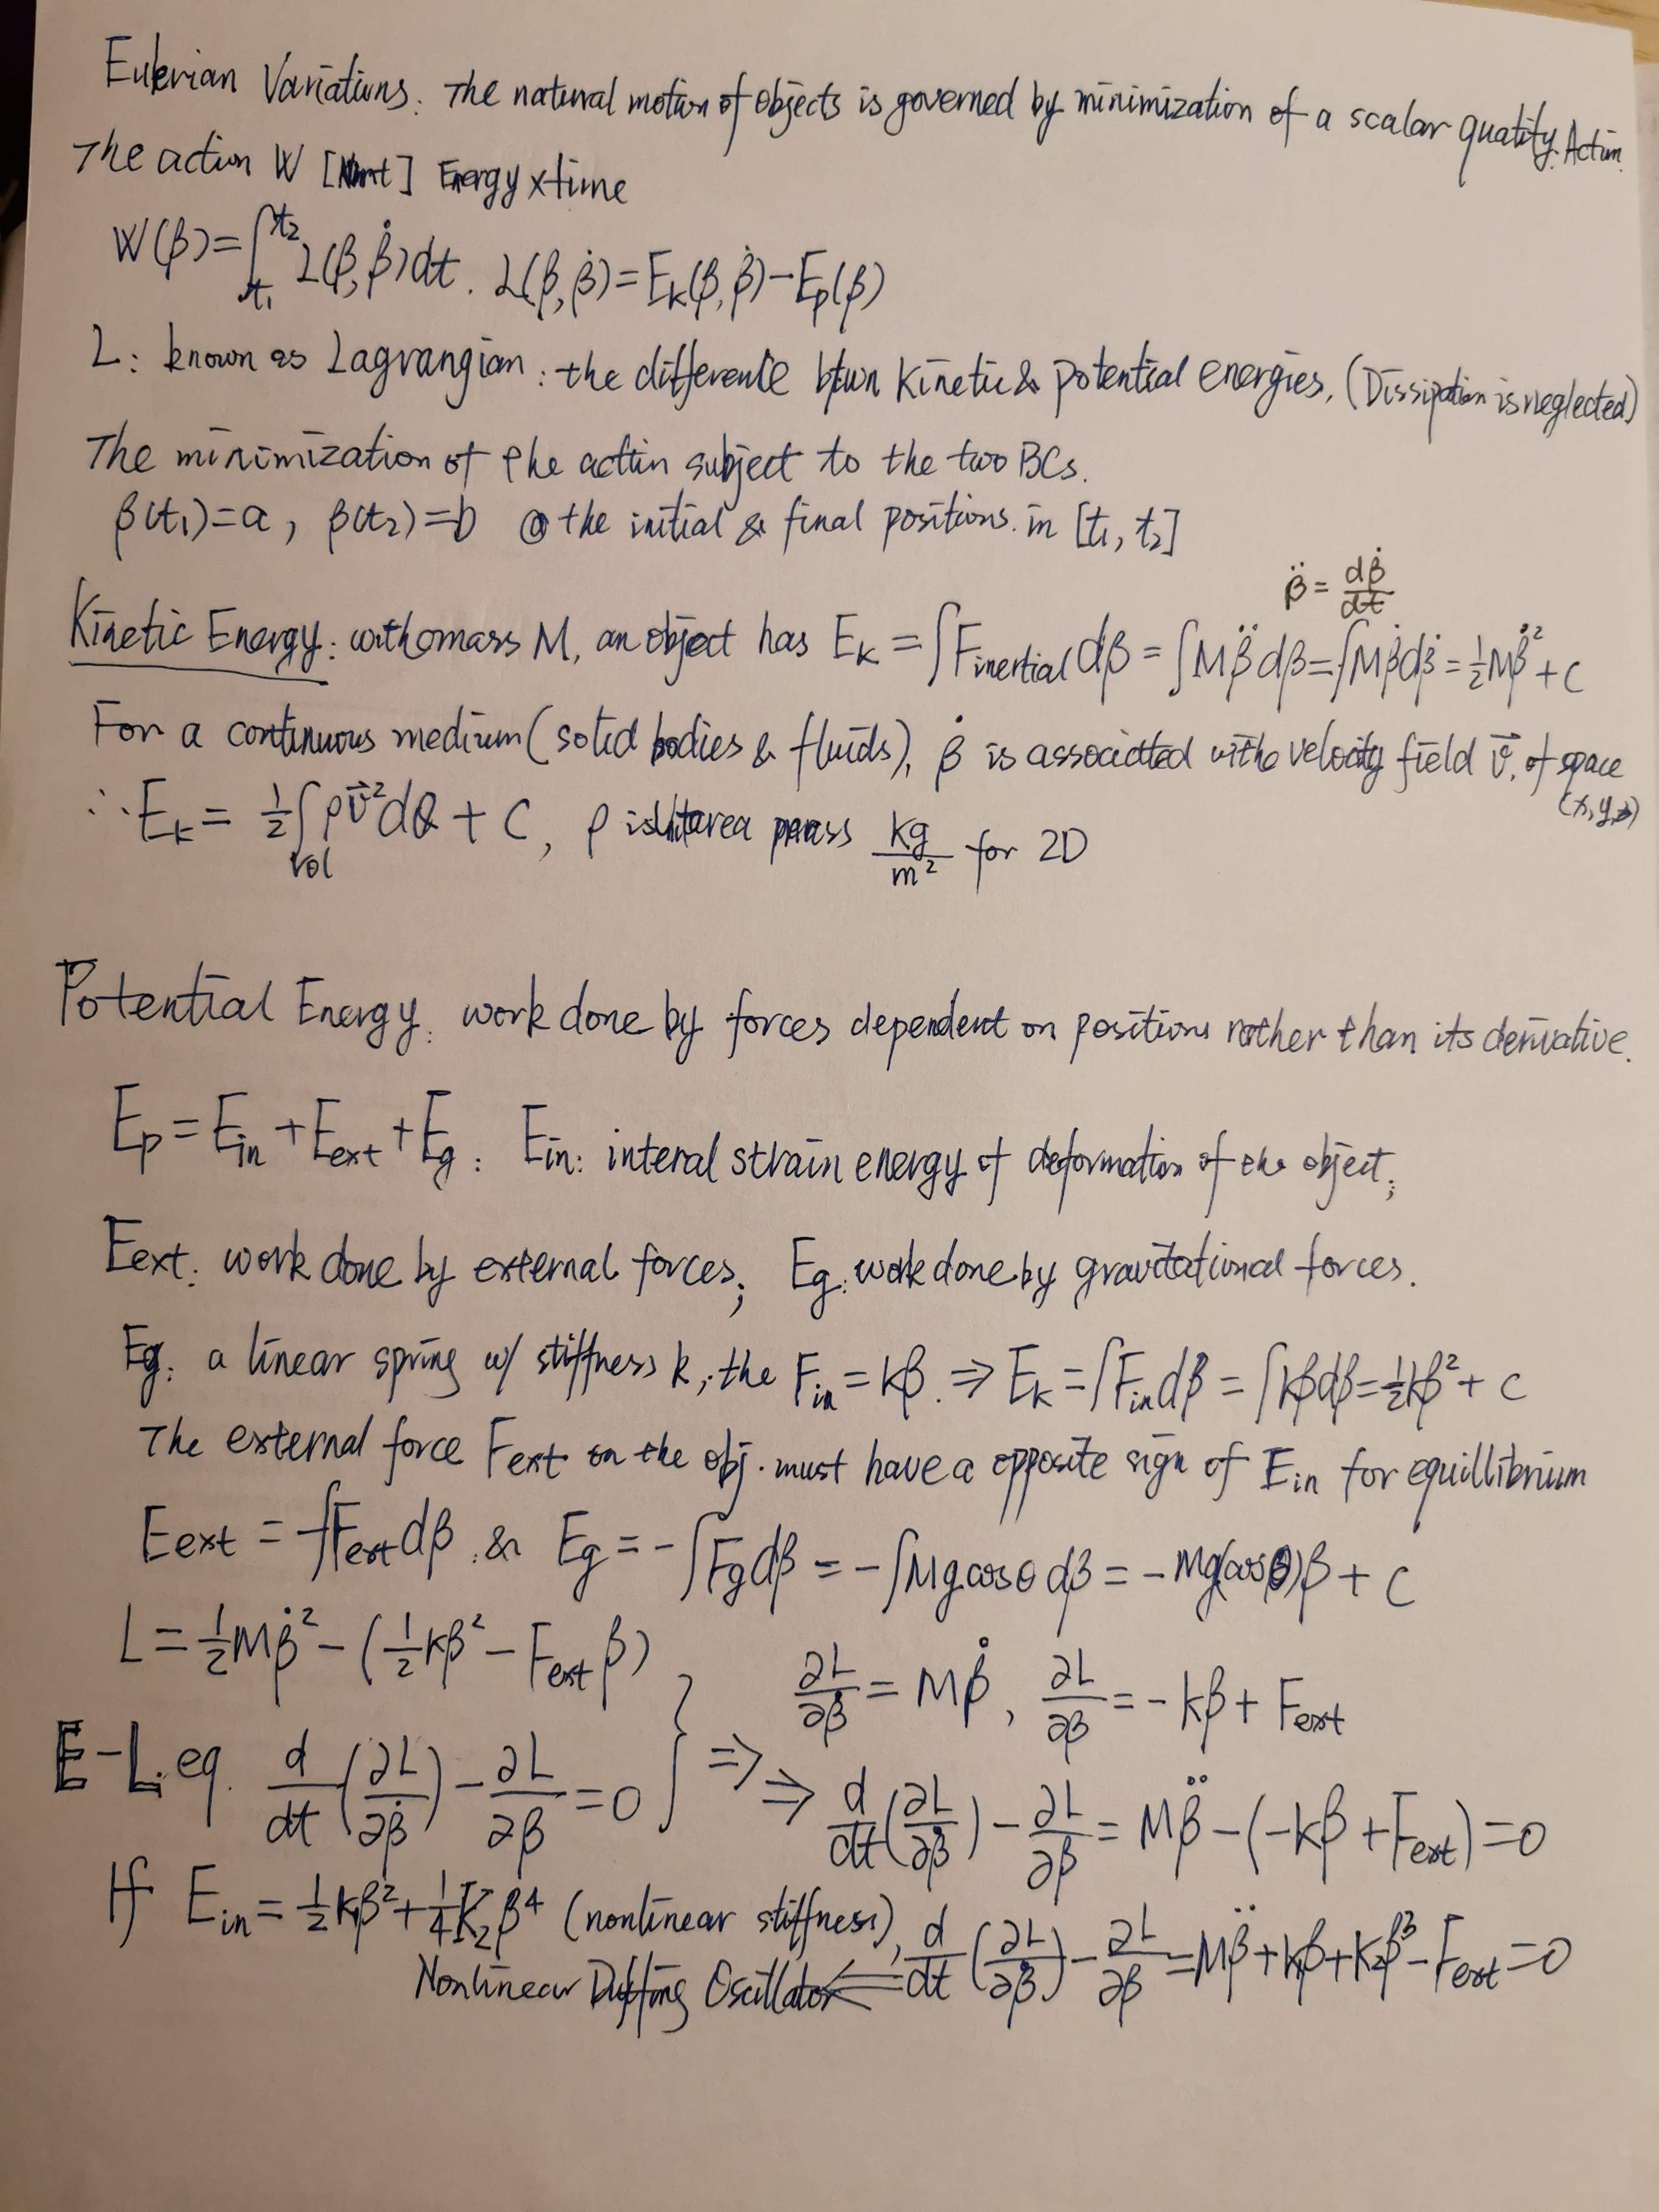 Eulerian Variations. The natural motion of objects is governed by minimization of a scalar quatity. Action.
The action W [] Energy × time
W(β) = ∫_{t₁}^{t₂} L(β, β̇)dt. L(β, β̇) = E_k(β, β̇) − E_p(β)
L: known as Lagrangian: the difference btwn Kinetic & potential energies, (Dissipation is neglected)
The minimization of the action subject to the two BCs.
β(t₁) = a, β(t₂) = b @ the initial & final positions. in [t₁, t₂]
β̈ = dβ̇/dt
Kinetic Energy: mass M, an object has E_k = ∫F_inertial dβ = ∫Mβ̈ dβ = ∫Mβ̇dβ̇ = ½Mβ̇² + C
For a continuous medium (solid bodies & fluids), β̇ is associated withe velocity field v⃗, of space
(x,y,z)
∴ E_k = ½∫_vol ρv⃗²dQ + C, ρ is area kg/m² for 2D
Potential Energy: work done by forces dependent on positions rather than its derivative.
E_p = E_in + E_ext + E_g: Ein: interal strain energy of deformation of the object;
Eext: work done by external forces; Eg: work done by gravitational forces.
Eg: a linear spring w/ stiffness k, the F_in = kβ. ⇒ E_k = ∫F_in dβ = ∫kβdβ = ½kβ² + C
The external force Fext on the obj. must have a opposite sign of E_in for equillibrium
E_ext = −∫F_ext dβ. & E_g = −∫F_g dβ = −∫Mg cosθ dβ = −Mg(cosθ)β + C
L = ½Mβ̇² − (½kβ² − F_ext β)
∂L/∂β̇ = Mβ̇, ∂L/∂β = −kβ + F_ext
E-L. eq. d/dt(∂L/∂β̇) − ∂L/∂β = 0 } ⇒
⇒ d/dt(∂L/∂β̇) − ∂L/∂β = Mβ̈ − (−kβ + F_ext) = 0
If E_in = ½k₁β² + ¼K₂β⁴ (nonlinear stiffness), d/dt(∂L/∂β̇) − ∂L/∂β = Mβ̈ + k₁β + K₂β³ − F_ext = 0
Nonlinear Duffing Oscillator ⇐